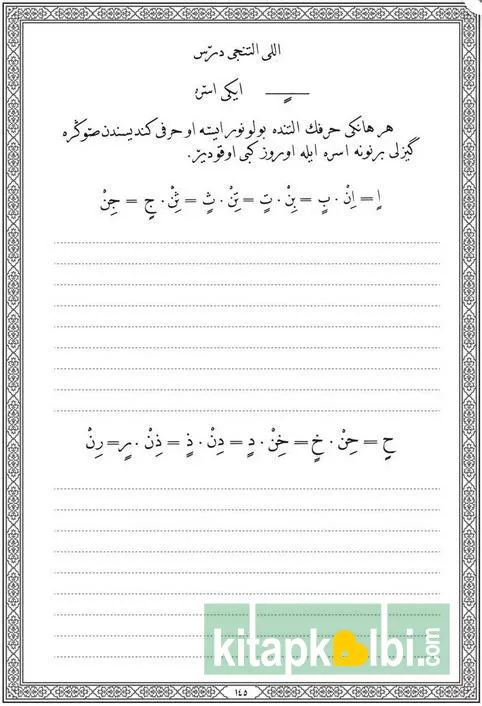 اللى التنجى درس
ـــٍـــ ايكى استره
هر هانكى حرفك التنده بولونور ايسه او حرفى كنديسندن صوڭره
گيزلى بر نونه اسره ايله اوروز كبى اوقوديّز.
اٍ = اِنْ · بٍ = بِنْ · تٍ = تِنْ · ثٍ = ثِنْ · جٍ = جِنْ
حٍ = حِنْ · خٍ = خِنْ · دٍ = دِنْ · ذٍ = ذِنْ · رٍ = رِنْ
kitapkalbi.com
١٤٥